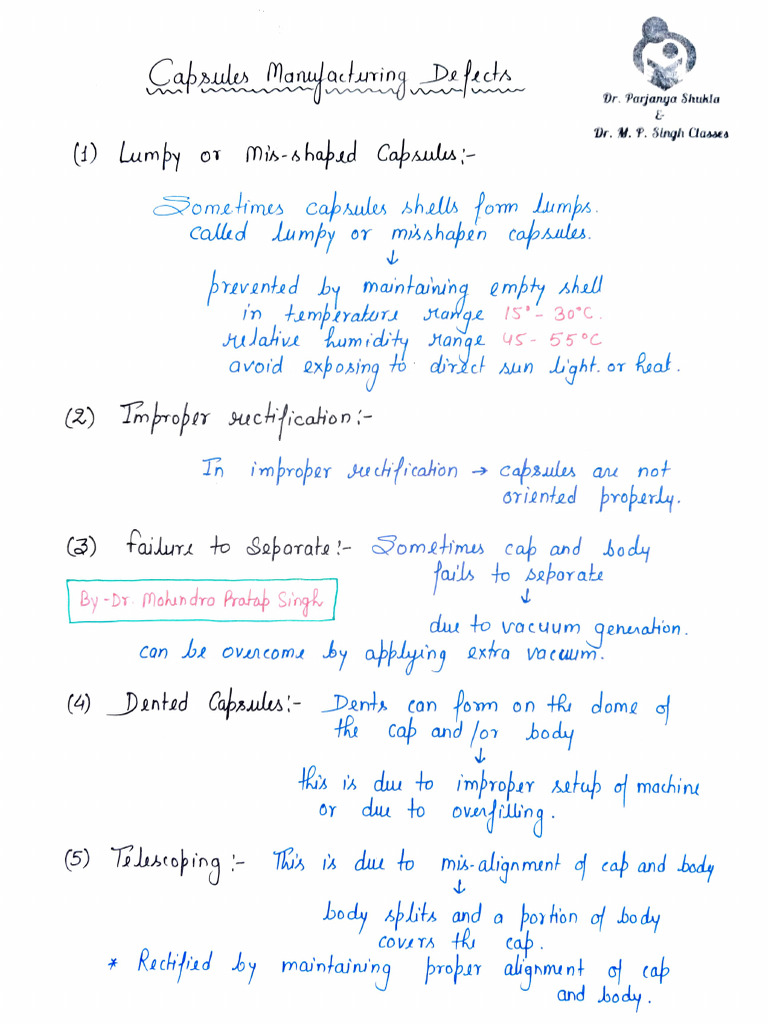 Capsules Manufacturing Defects
Dr. Parjanya Shukla
&
Dr. M. P. Singh Classes
(1) Lumpy or Mis-shaped Capsules:-
Sometimes capsules shells form lumps.
called lumpy or misshapen capsules.
↓
prevented by maintaining empty shell
in temperature range 15°- 30°C.
relative humidity range 45- 55°C
avoid exposing to direct sun light. or heat.
(2) Improper rectification:-
In improper rectification → capsules are not
oriented properly.
(3) Failure to Separate:- Sometimes cap and body
fails to separate
↓
By -Dr. Mohendra Pratap Singh
due to vacuum generation.
can be overcome by applying extra vacuum.
(4) Dented Capsules:- Dents can form on the dome of
the cap and/or body
↓
this is due to improper setup of machine
or due to overfilling.
(5) Telescoping:- This is due to mis-alignment of cap and body
↓
body splits and a portion of body
covers the cap.
* Rectified by maintaining proper alignment of cap
and body.